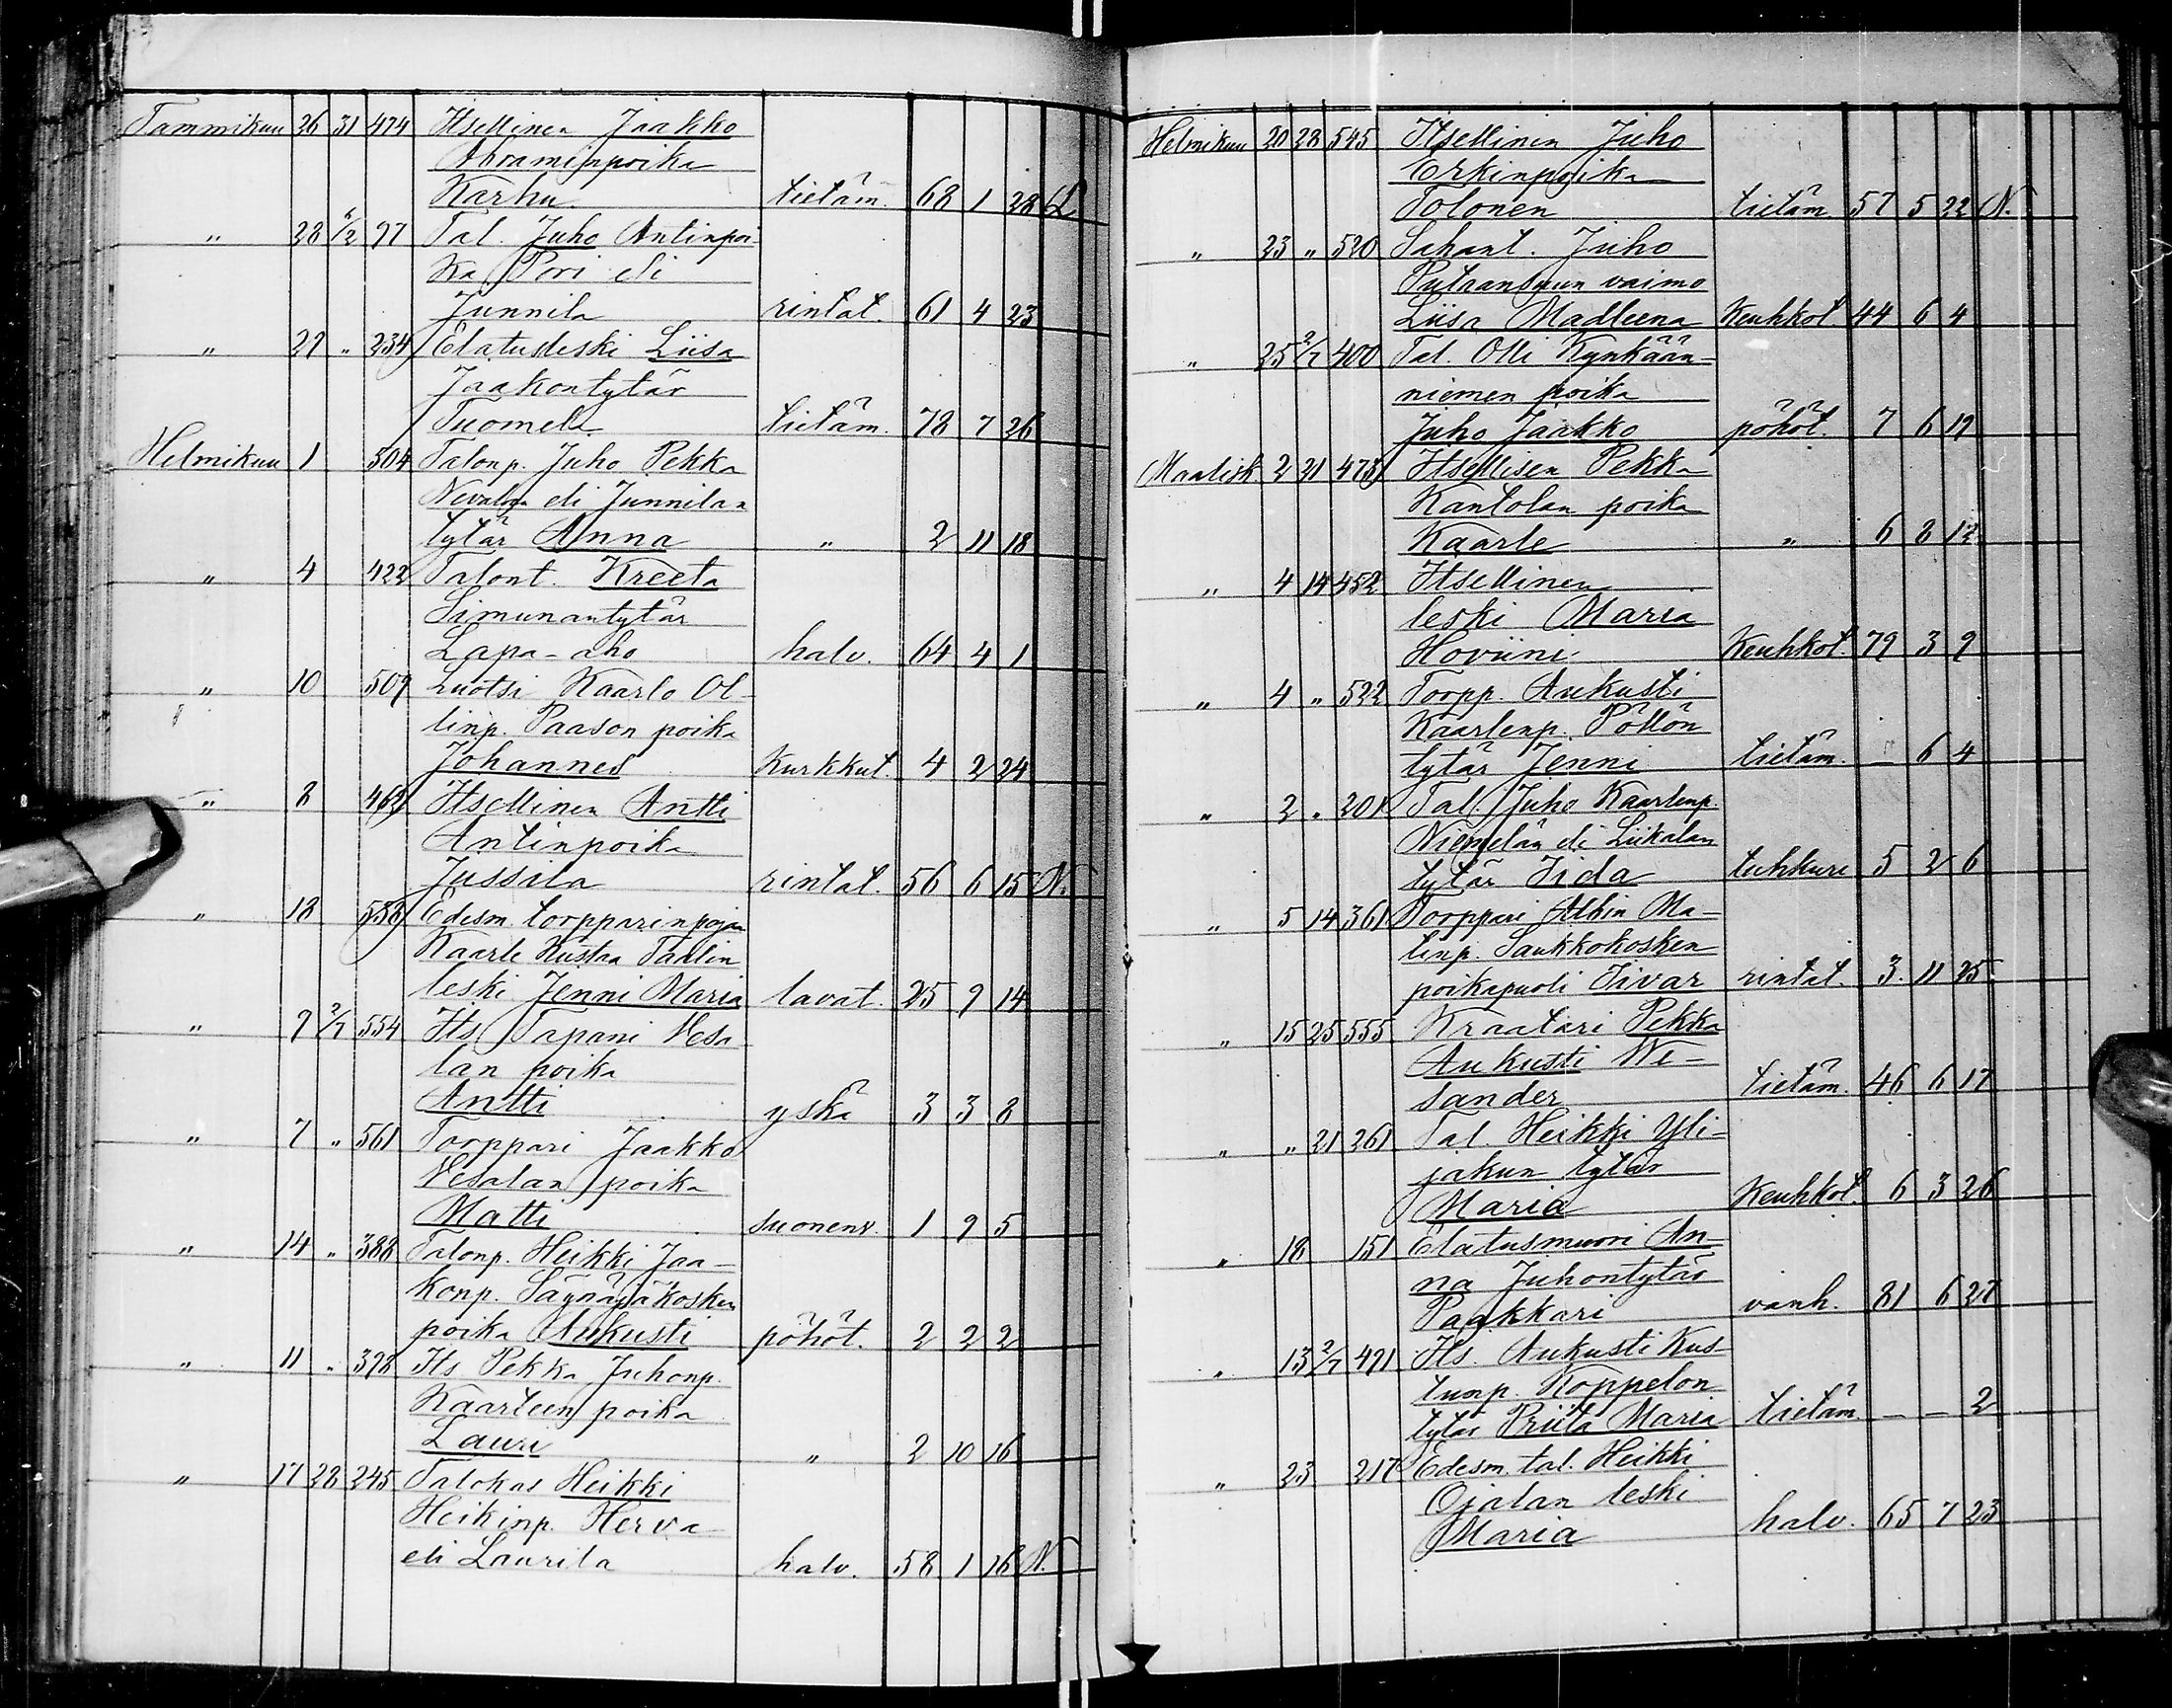 Tammikuu 26 31 474 Itsellinen Jaakko
Abraminpoika
Karhu tietäm. 68 1 28 L
" 28 6/2 97 Tal. Juho Antinpoi-
ka Pori eli
Junnila rintat. 61 4 23
" 29 " 234 Elatusleski Liisa
Jaakontytär
Tuomela tietäm. 78 7 26
Helmikuu 1 504 Talonp. Juho Pekka
Nevalan eli Junnilan
tytär Anna " 2 11 18
" 4 422 Talont. Kreeta
Simunantytär
Lapa-aho halv. 64 4 1
" 10 509 Luotsi Kaarlo Ol-
linp. Paason poika
Johannes Kurkkut. 4 2 24
" 8 462 Itsellinen Antti
Antinpoika
Jussila rintat. 56 6 15 N.
" 18 558 Edesm. torpparinpojan
Kaarle Kustaa Taalin
leski Jenni Maria lavat. 25 9 14
" 9 2/7 554 Its. Tapani Vesa
lan poika
Antti yskä 3 3 8
" 7 " 561 Torppari Jaakko
Vesalan poika
Matti suonenv. 1 9 5
" 14 " 388 Talonp. Heikki Jaa-
konp. Säynäjäkosken
poika Aukusti pöhöt. 2 2 2
" 11 " 398 Its Pekka Juhonp.
Kaarteen poika
Lauri " 2 10 16
" 17 28 245 Talokas Heikki
Heikinp. Herva
eli Laurila halv. 58 1 16 N.
Helmikuu 20 28 545 Itsellinen Juho
Erkinpoika
Tolonen tietäm 57 5 22 N.
" 23 " 520 Sahant. Juho
Putaansuun vaimo
Liisa Madleena Keuhkot 44 6 4
" 25 2/7 400 Tal. Olli Kynkään-
niemen poika
Juho Jaakko pöhöt. 7 6 19
Maalisk. 2 21 473 Itsellisen Pekka
Kantolan poika
Kaarle " 6 8 12
" 4 14 452 Itsellinen
leski Maria
Hoviini Keuhkot. 79 3 9
" 4 " 522 Torpp. Aukusti
Kaarlenp. Pöllön
tytär Jenni tietäm. - 6 4
" 2 " 201 Tal. Juho Kaarlenp.
Niemelän eli Liikalan
tytär Iida tuhkuri 5 2 6
" 5 14 361 Torppari Albin Ma-
tinp. Saukkokosken
poikapuoli Iivar rintat. 3. 11 25
" 15 25 555 Kraatari Pekka
Aukusti We-
sander tietäm. 46 6 17
" " 21 261 Tal. Heikki Yli-
jakun tytär
Maria Keuhkot. 6 3 26
" 18 151 Elatusmuori An-
na Juhontytär
Paakkari vanh. 81 6 27
" 13 2/7 491 Its. Aukusti Kus-
tunp. Koppelon
tytär Priita Maria tietäm - - 2
" 23 217 Edesm. tal. Heikki
Ojalan leski
Maria halv. 65 7 23